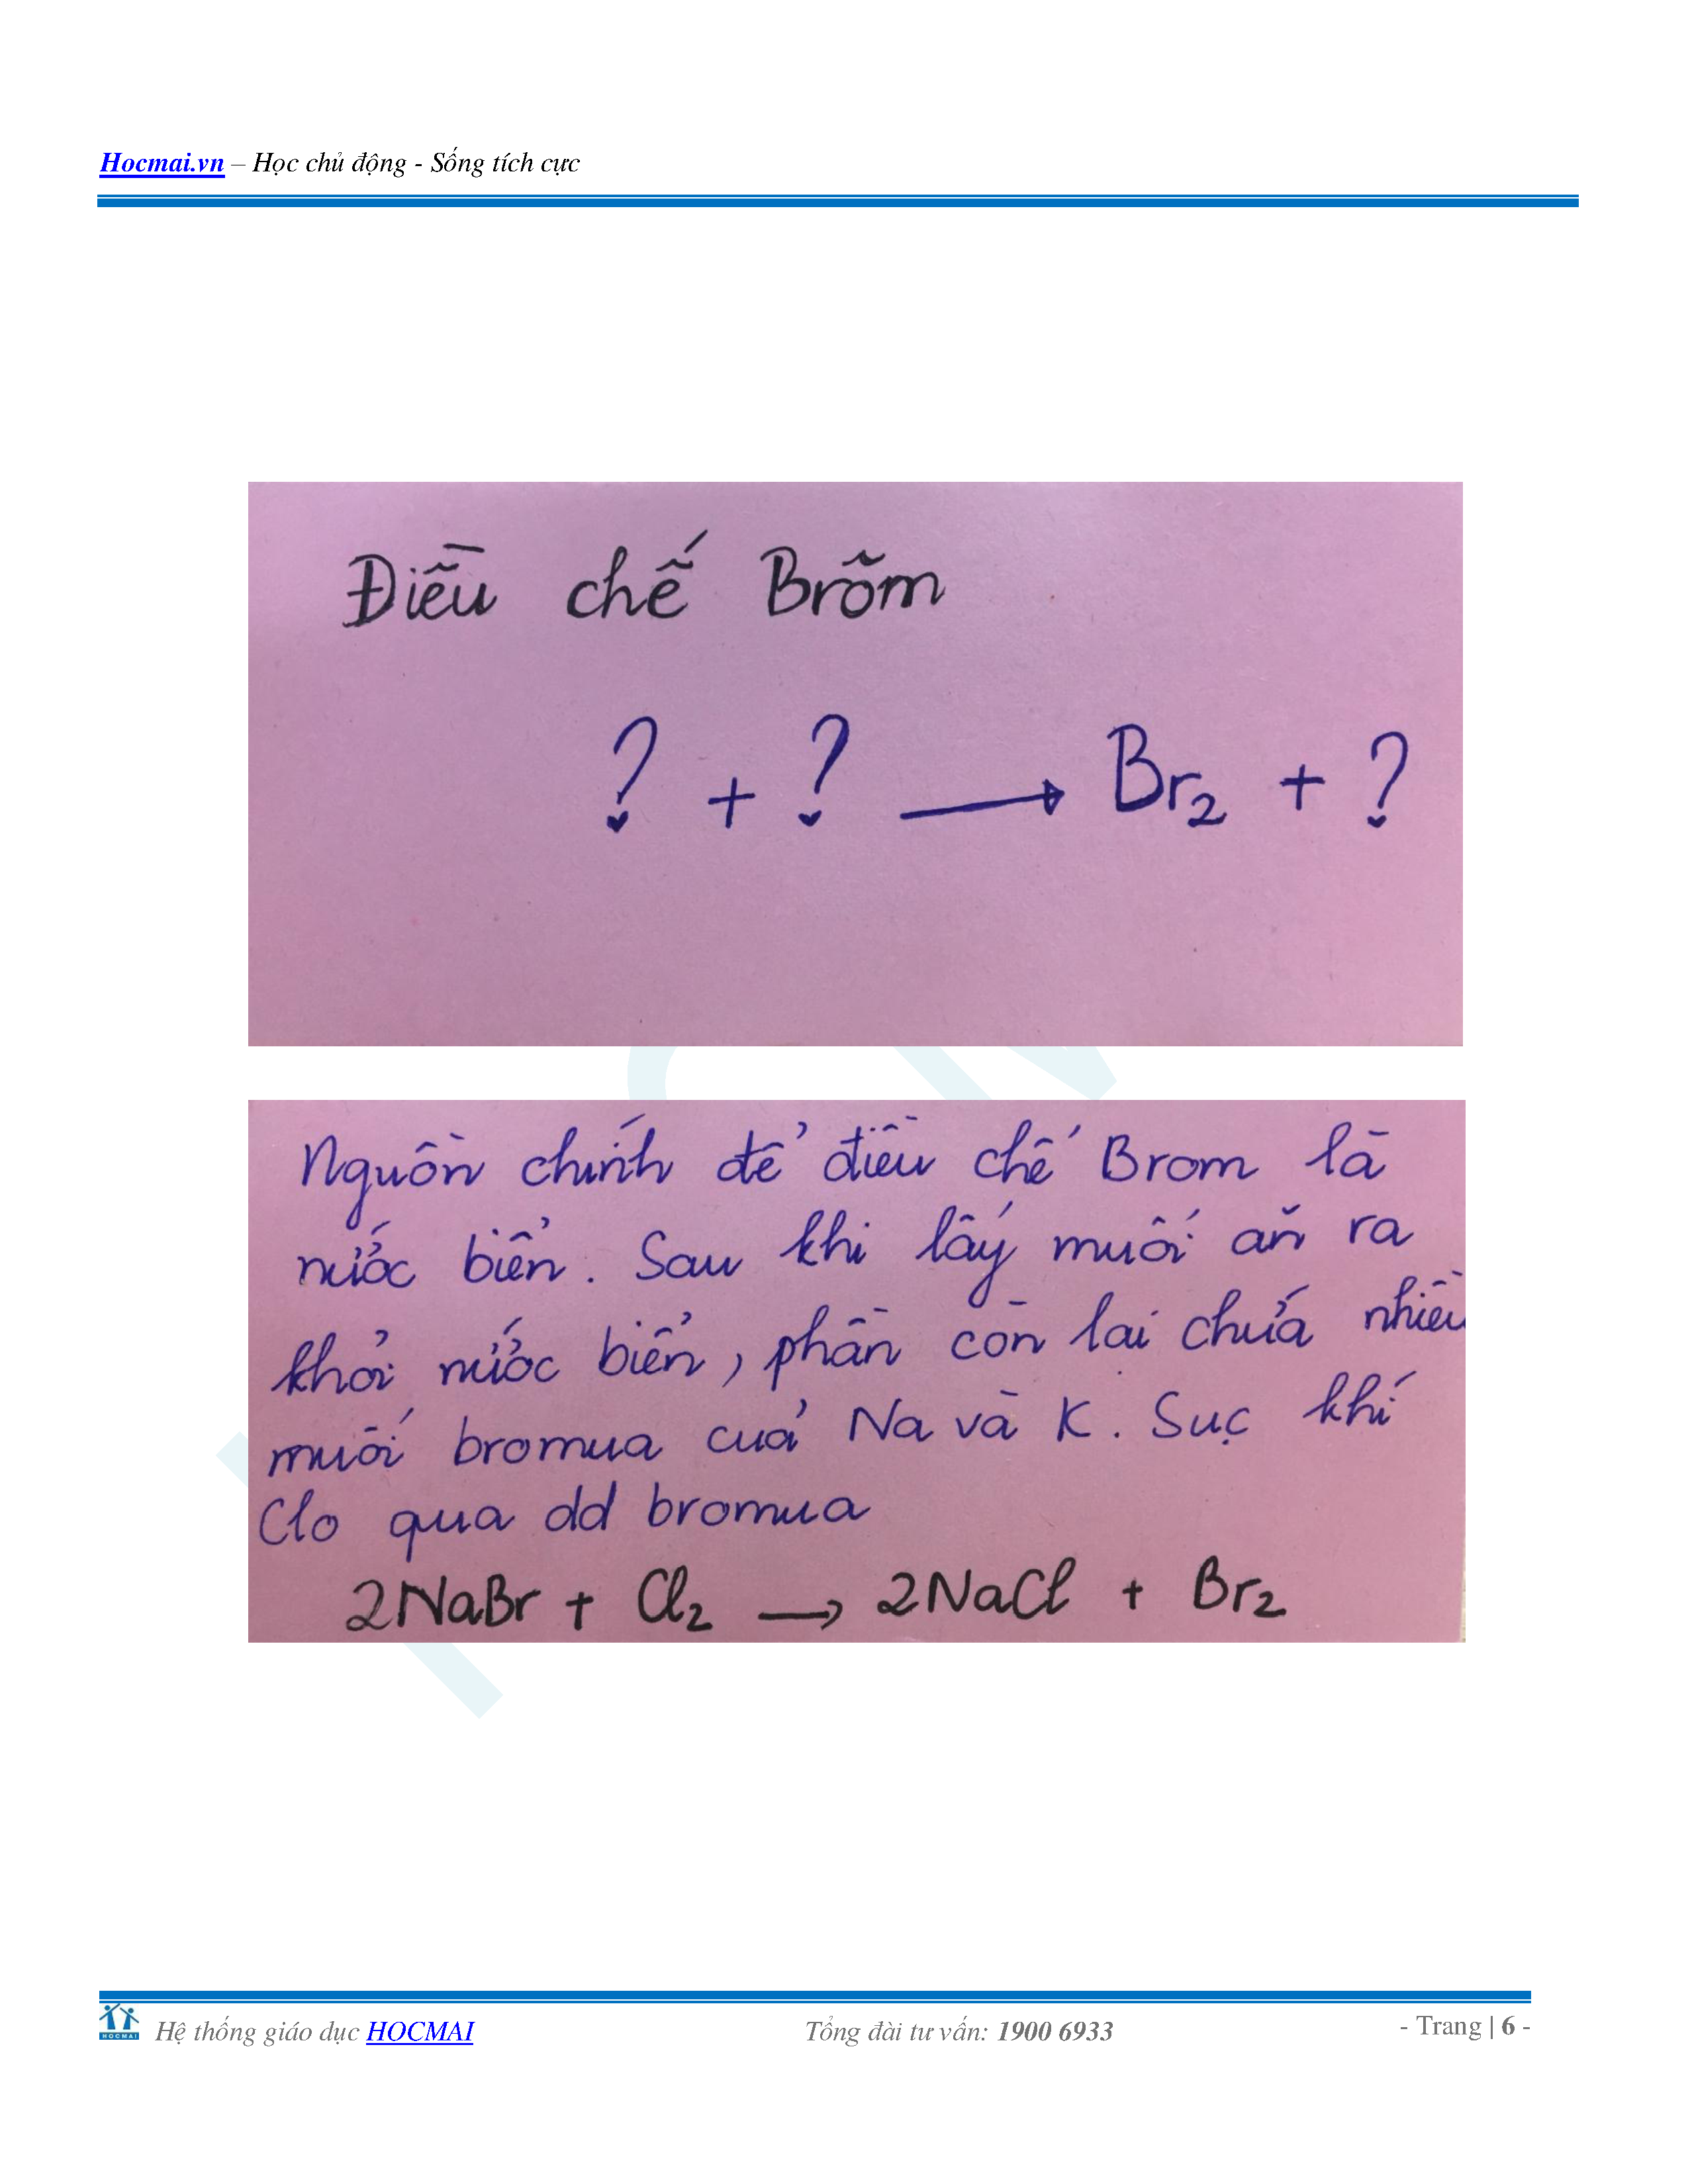 Hocmai.vn – Học chủ động - Sống tích cực
Điều chế Brôm
? + ? → Br₂ + ?
Nguồn chính để điều chế Brom là
nước biển. Sau khi lấy muối ăn ra
khỏi nước biển, phần còn lại chứa nhiều
muối bromua của Na và K. Sục khí
Clo qua dd bromua
2NaBr + Cl₂ → 2NaCl + Br₂
HOCMAI
Hệ thống giáo dục HOCMAI Tổng đài tư vấn: 1900 6933 - Trang | 6 -